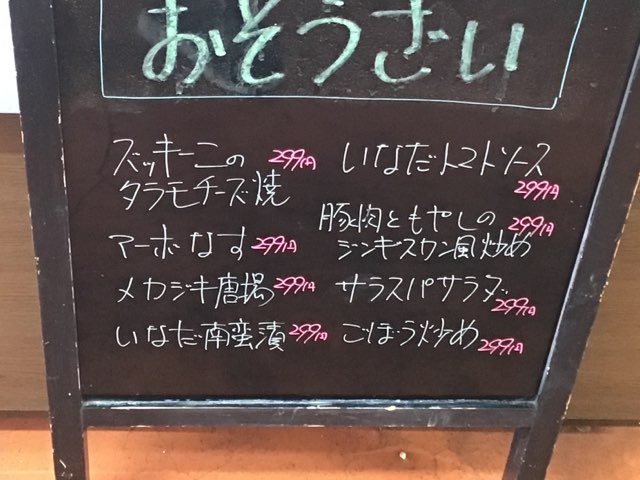 おそうざい
ズッキーニの 299円
タラモチーズ焼
マーボなす 299円
メカジキ唐揚 299円
いなだ南蛮漬 299円
いなだトマトソース
299円
豚肉ともやしの 299円
ジンギスカン風炒め
サラスパサラダ 299円
ごぼう炒め 299円